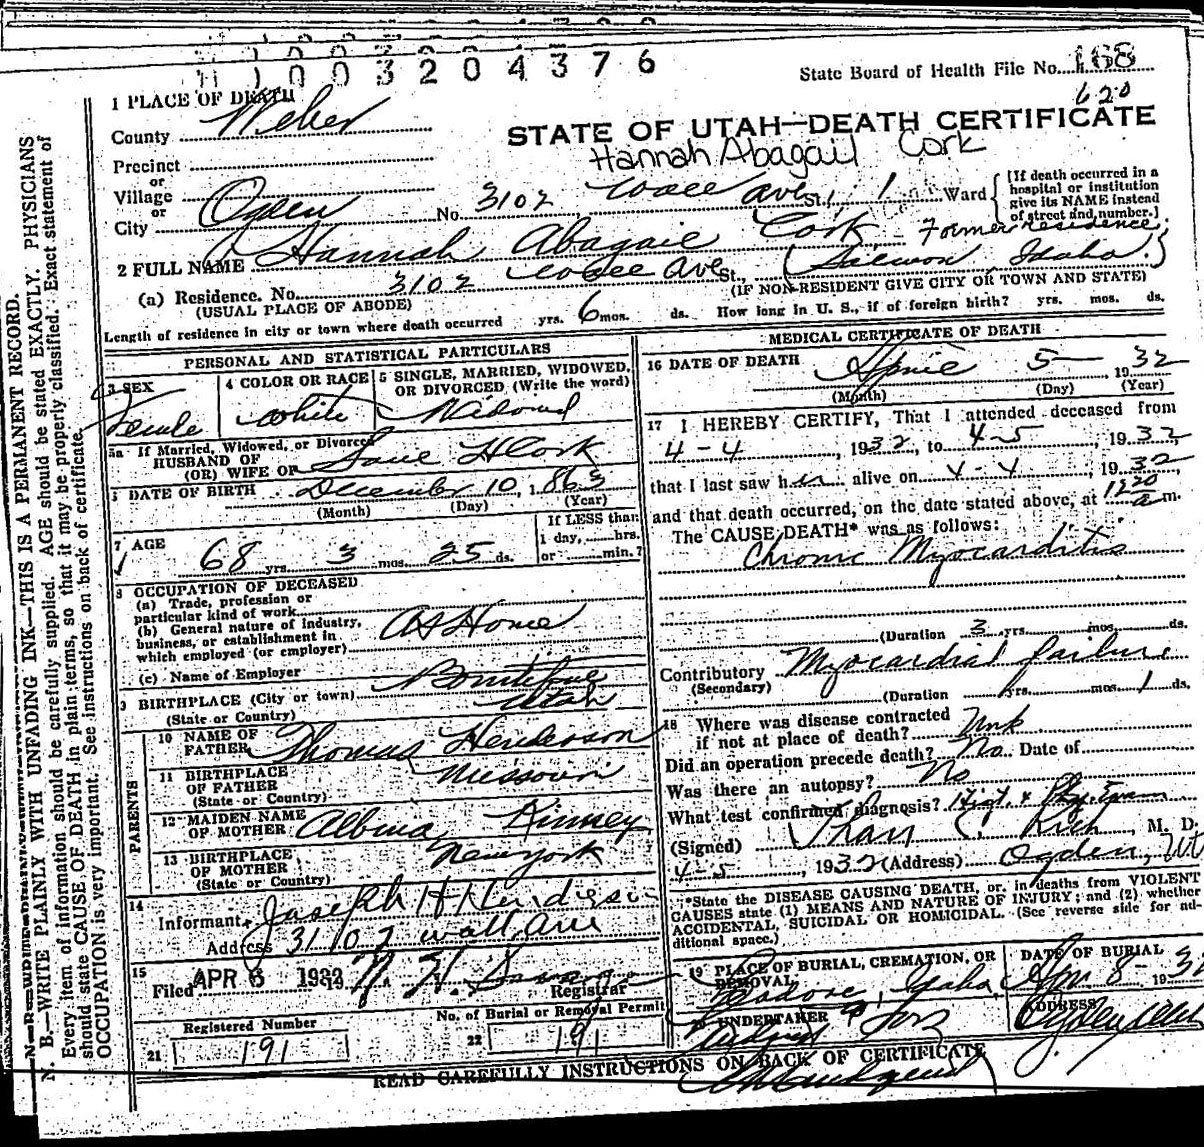 1003204376
State Board of Health File No. 168
620
1 PLACE OF DEATH
County Weber
STATE OF UTAH—DEATH CERTIFICATE
Hannah Abagail Cork
Precinct
or
Village
or
City Ogden No. 3102 Wall Ave St., 1 Ward
[If death occurred in a
hospital or institution
give its NAME instead
of street and number.]
2 FULL NAME Hannah Abagail Cork, - Former residence
(a) Residence. No. 3102 Wall Ave St., (Salmon Idaho.)
(USUAL PLACE OF ABODE) (IF NON-RESIDENT GIVE CITY OR TOWN AND STATE)
Length of residence in city or town where death occurred yrs. 6 mos. ds. How long in U. S., if of foreign birth? yrs. mos. ds.
PERSONAL AND STATISTICAL PARTICULARS
3 SEX
Female
4 COLOR OR RACE
White
5 SINGLE, MARRIED, WIDOWED,
OR DIVORCED (Write the word)
Widowed
5a If Married, Widowed, or Divorced
HUSBAND OF
(OR) WIFE OF H Cork
DATE OF BIRTH December 10, 1863
(Month) (Day) (Year)
7 AGE
68 yrs. 3 mos. 25 ds.
If LESS than
1 day, hrs.
or min.?
8 OCCUPATION OF DECEASED
(a) Trade, profession or
particular kind of work
(b) General nature of industry,
business, or establishment in
which employed (or employer)
At Home
(c) Name of Employer
9 BIRTHPLACE (City or town) Bountiful
(State or Country) Utah
PARENTS
10 NAME OF
FATHER Thomas Henderson
11 BIRTHPLACE
OF FATHER Missouri
(State or Country)
12 MAIDEN NAME
OF MOTHER Albina Kinney
13 BIRTHPLACE
OF MOTHER New York
(State or Country)
14
Informant Joseph H Henderson
Address 3102 Wall Ave
15
Filed APR 6 1932
Registrar
Registered Number
21 191
No. of Burial or Removal Permit
22 191
MEDICAL CERTIFICATE OF DEATH
16 DATE OF DEATH April 5 1932
(Month) (Day) (Year)
17 I HEREBY CERTIFY, That I attended deceased from
4-4, 1932, to 4-5, 1932
that I last saw her alive on 4-4, 1932,
and that death occurred, on the date stated above, at 1220 a m.
The CAUSE DEATH* was as follows:
Chronic Myocarditis
(Duration 3 yrs. mos. ds.
Contributory Myocardial failure
(Secondary)
(Duration yrs. mos. 1 ds.
18 Where was disease contracted
if not at place of death? Unk
Did an operation precede death? No Date of
Was there an autopsy? No
What test confirmed diagnosis? Hist. & Phy. Exam
(Signed) Rich, M. D.
4-5, 1932 (Address) Ogden, Ut
*State the DISEASE CAUSING DEATH, or, in deaths from VIOLENT
CAUSES state (1) MEANS AND NATURE OF INJURY; and (2) whether
ACCIDENTAL, SUICIDAL OR HOMICIDAL. (See reverse side for ad-
ditional space.)
19 PLACE OF BURIAL, CREMATION, OR
REMOVAL
Idaho
DATE OF BURIAL
Apr 8 - 1932
UNDERTAKER
& Sons
ADDRESS
Ogden Utah
READ CAREFULLY INSTRUCTIONS ON BACK OF CERTIFICATE
N. B.—WRITE PLAINLY WITH UNFADING INK—THIS IS A PERMANENT RECORD.
Every item of information should be carefully supplied. AGE should be stated EXACTLY. PHYSICIANS
should state CAUSE OF DEATH in plain terms, so that it may be properly classified. Exact statement of
OCCUPATION is very important. See instructions on back of certificate.